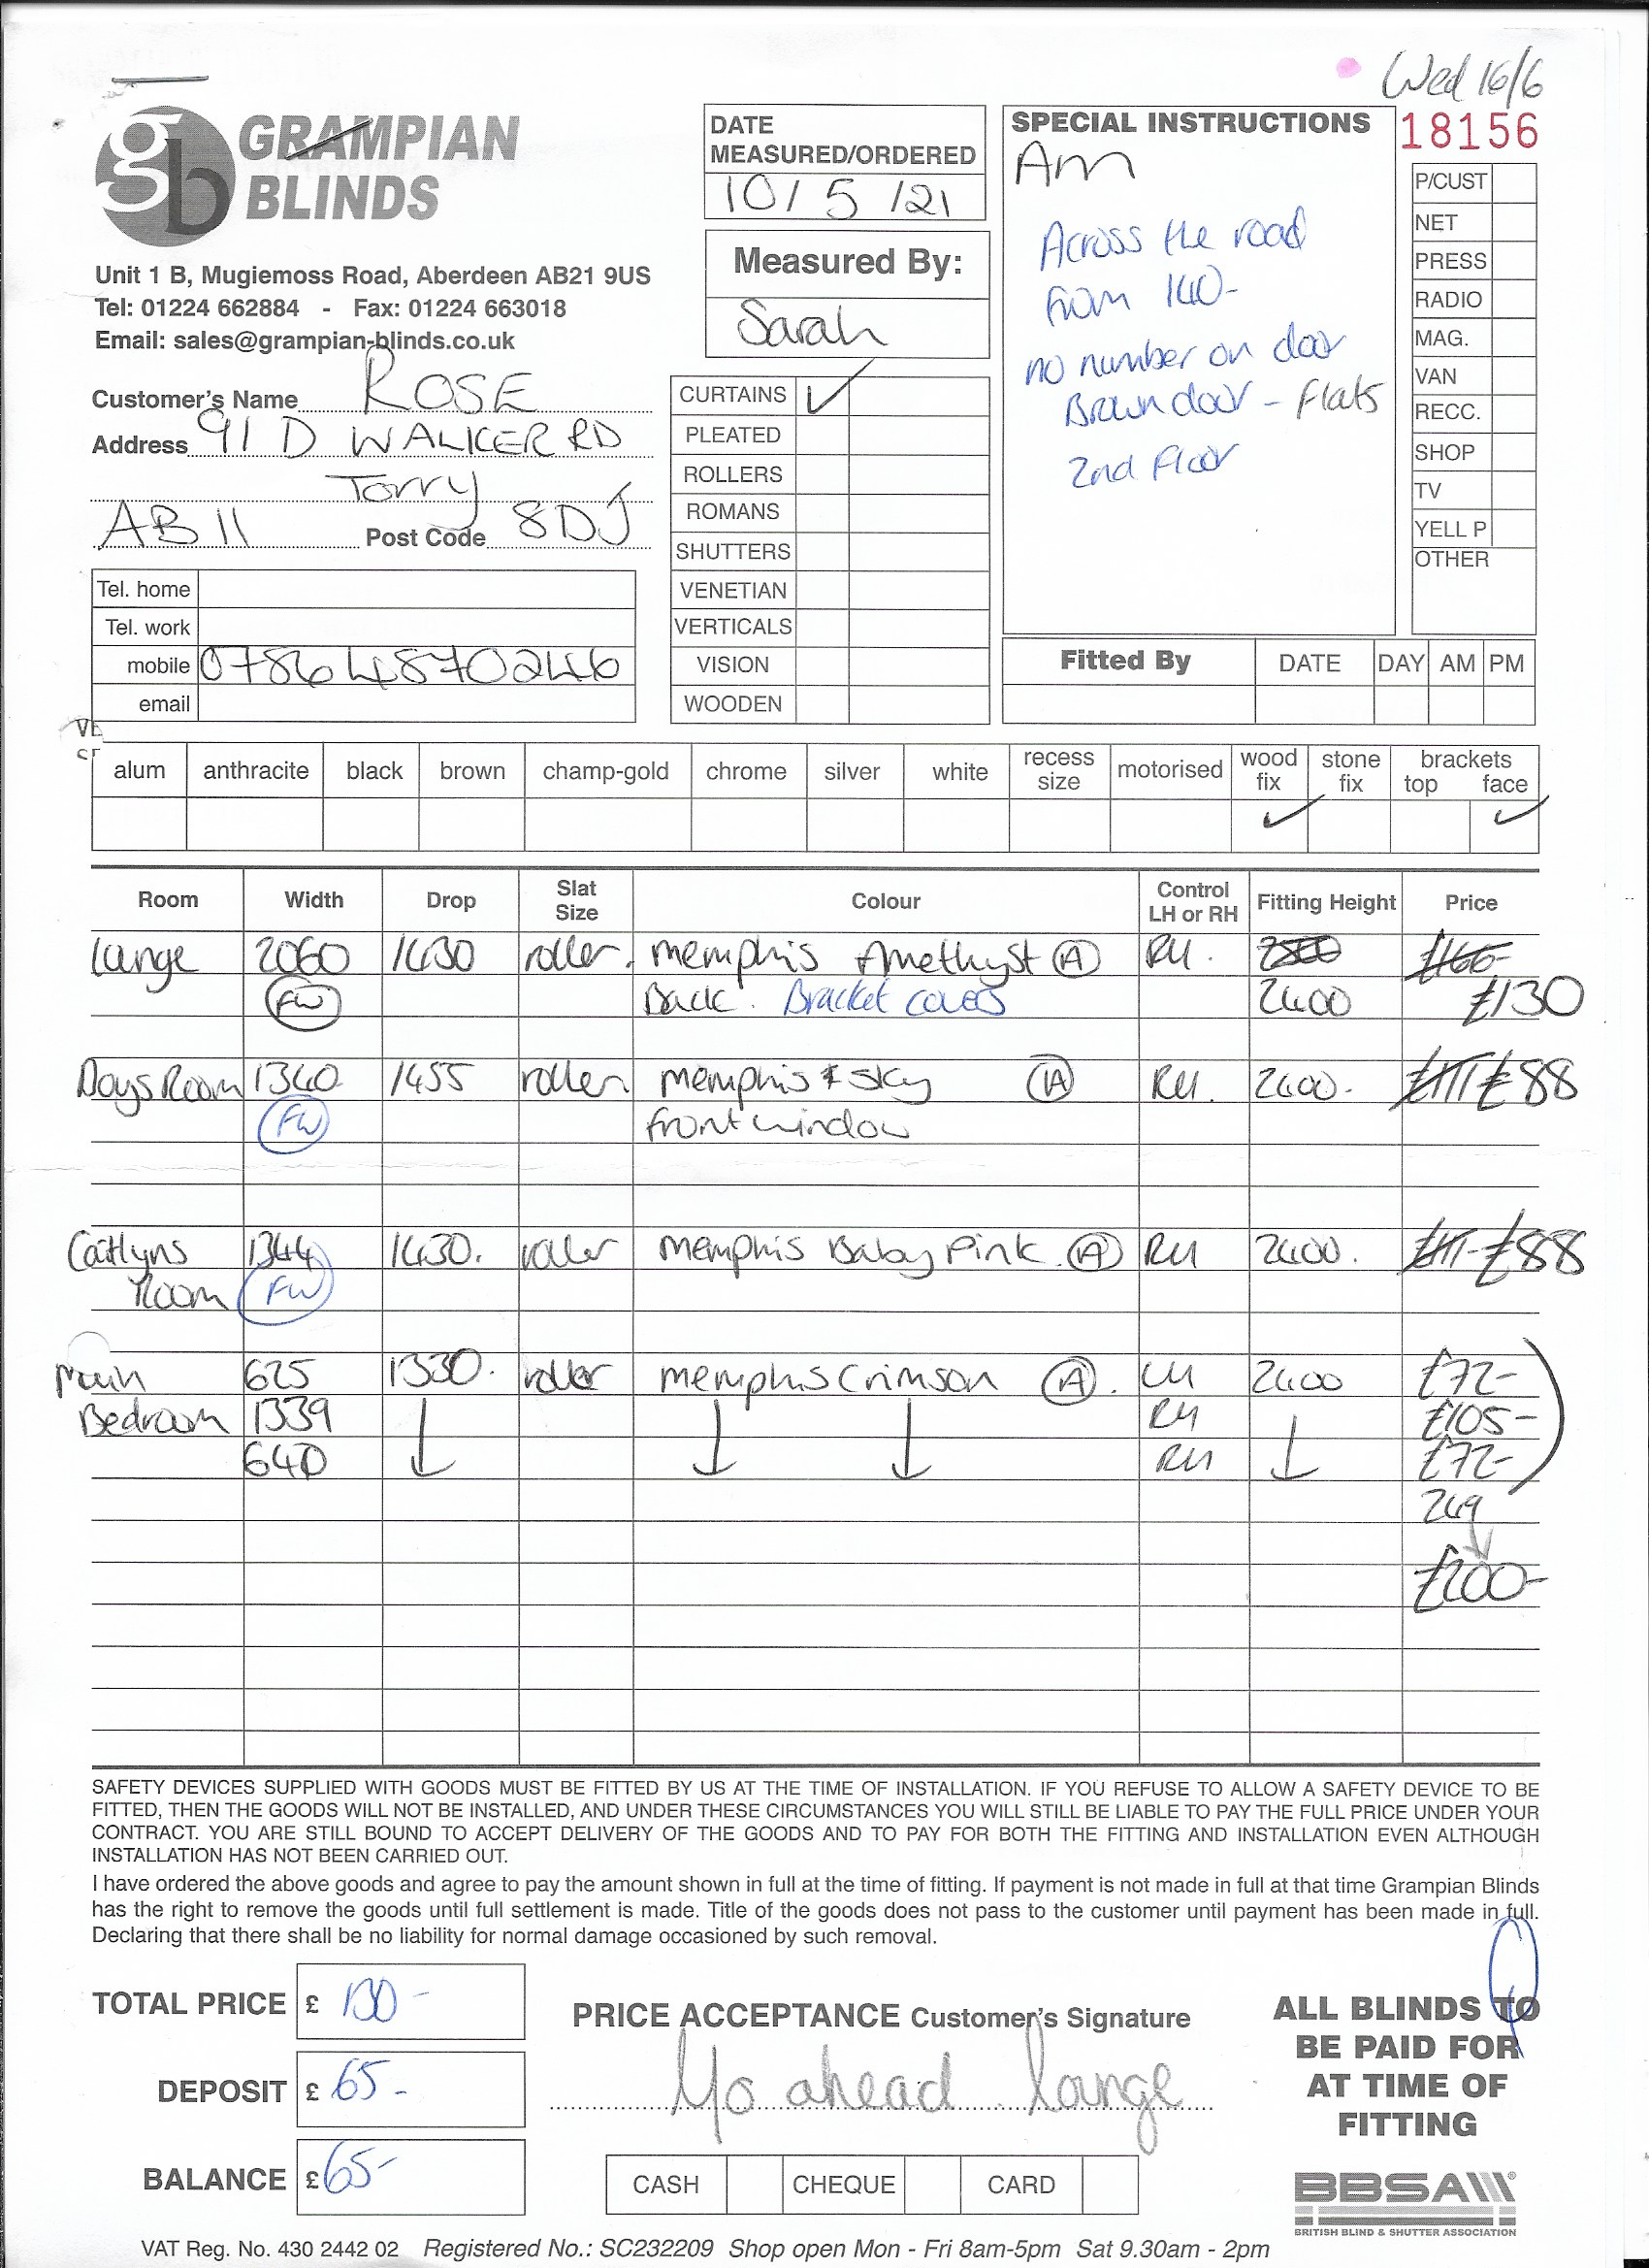 Wed 16/6
GRAMPIAN
BLINDS
Unit 1 B, Mugiemoss Road, Aberdeen AB21 9US
Tel: 01224 662884 - Fax: 01224 663018
Email: sales@grampian-blinds.co.uk
Customer's Name ROSE
Address 91 D WALKER RD
Torry
AB11 Post Code 8DJ
Tel. home
Tel. work
mobile 07864870246
email
DATE
MEASURED/ORDERED
10/5/21
Measured By:
Sarah
CURTAINS ✓
PLEATED
ROLLERS
ROMANS
SHUTTERS
VENETIAN
VERTICALS
VISION
WOODEN
SPECIAL INSTRUCTIONS
Am
Across the road
from 140-
no number on door
Brown door - Flats
2nd Floor
18156
P/CUST
NET
PRESS
RADIO
MAG.
VAN
RECC.
SHOP
TV
YELL P
OTHER
Fitted By DATE DAY AM PM
alum anthracite black brown champ-gold chrome silver white recess size motorised wood fix stone fix brackets top face
✓ ✓
Room Width Drop Slat Size Colour Control LH or RH Fitting Height Price
Lounge 2060 1430 roller. memphis Amethyst (A) RH. £166-
(FW) Back. Bracket covers 2400 £130
Room 1340 1455 roller memphis Sky (A) RH. 2400. £111 £88
(FW) front window
Caitlyns 1344 1430. roller memphis Baby Pink (A) RH 2400. £111- £88
Room (FW)
Main 625 1330. roller memphis Crimson (A). LH 2400 £72-
Bedroom 1339 RH £105-
640 RH £72-
249
£200-
SAFETY DEVICES SUPPLIED WITH GOODS MUST BE FITTED BY US AT THE TIME OF INSTALLATION. IF YOU REFUSE TO ALLOW A SAFETY DEVICE TO BE
FITTED, THEN THE GOODS WILL NOT BE INSTALLED, AND UNDER THESE CIRCUMSTANCES YOU WILL STILL BE LIABLE TO PAY THE FULL PRICE UNDER YOUR
CONTRACT. YOU ARE STILL BOUND TO ACCEPT DELIVERY OF THE GOODS AND TO PAY FOR BOTH THE FITTING AND INSTALLATION EVEN ALTHOUGH
INSTALLATION HAS NOT BEEN CARRIED OUT.
I have ordered the above goods and agree to pay the amount shown in full at the time of fitting. If payment is not made in full at that time Grampian Blinds
has the right to remove the goods until full settlement is made. Title of the goods does not pass to the customer until payment has been made in full.
Declaring that there shall be no liability for normal damage occasioned by such removal.
TOTAL PRICE £ 130-
DEPOSIT £ 65-
BALANCE £ 65-
PRICE ACCEPTANCE Customer's Signature
Go ahead lounge
CASH CHEQUE CARD
ALL BLINDS TO
BE PAID FOR
AT TIME OF
FITTING
BBSA
BRITISH BLIND & SHUTTER ASSOCIATION
VAT Reg. No. 430 2442 02 Registered No.: SC232209 Shop open Mon - Fri 8am-5pm Sat 9.30am - 2pm